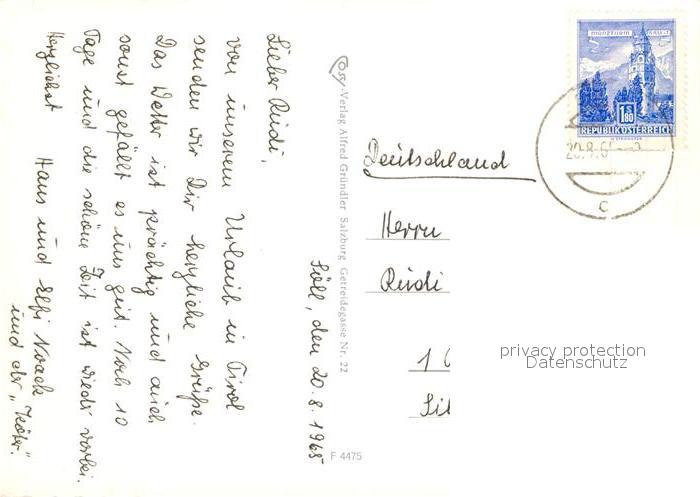 Söll, den 20.8.1965
Lieber Rudi,
von unserem Urlaub in Tirol
senden wir Dir herzliche Grüße.
Das Wetter ist prächtig und auch
sonst gefällt es uns gut. Noch 10
Tage und die schöne Zeit ist wieder vorbei.
Herzlichst Hans und Elfi Noack
und der "Köter"
Cosy-Verlag Alfred Gründler Salzburg Getreidegasse Nr. 22
F 4475
MÜNZTURM HALL I. T.
S
1.80
REPUBLIK ÖSTERREICH
20.8.6
c
Deutschland
Herrn
Rudi
1
privacy protection
Datenschutz